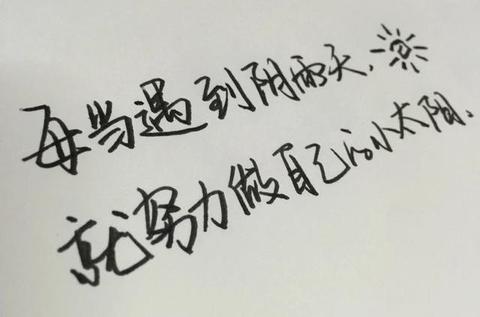 每当遇到阴雨天，
就努力做自己的小太阳.